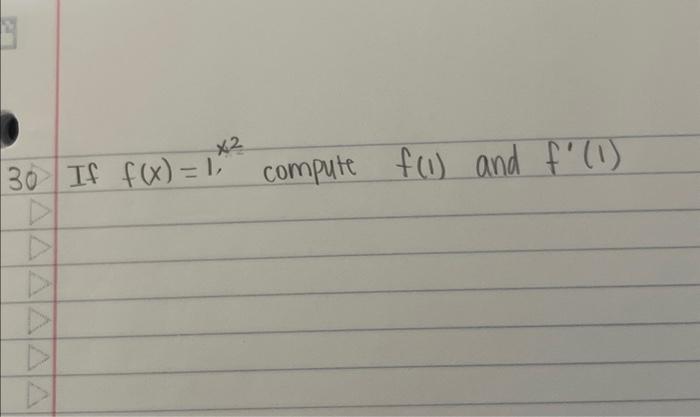 30 If f(x) = 1,^x2 compute f(1) and f'(1)